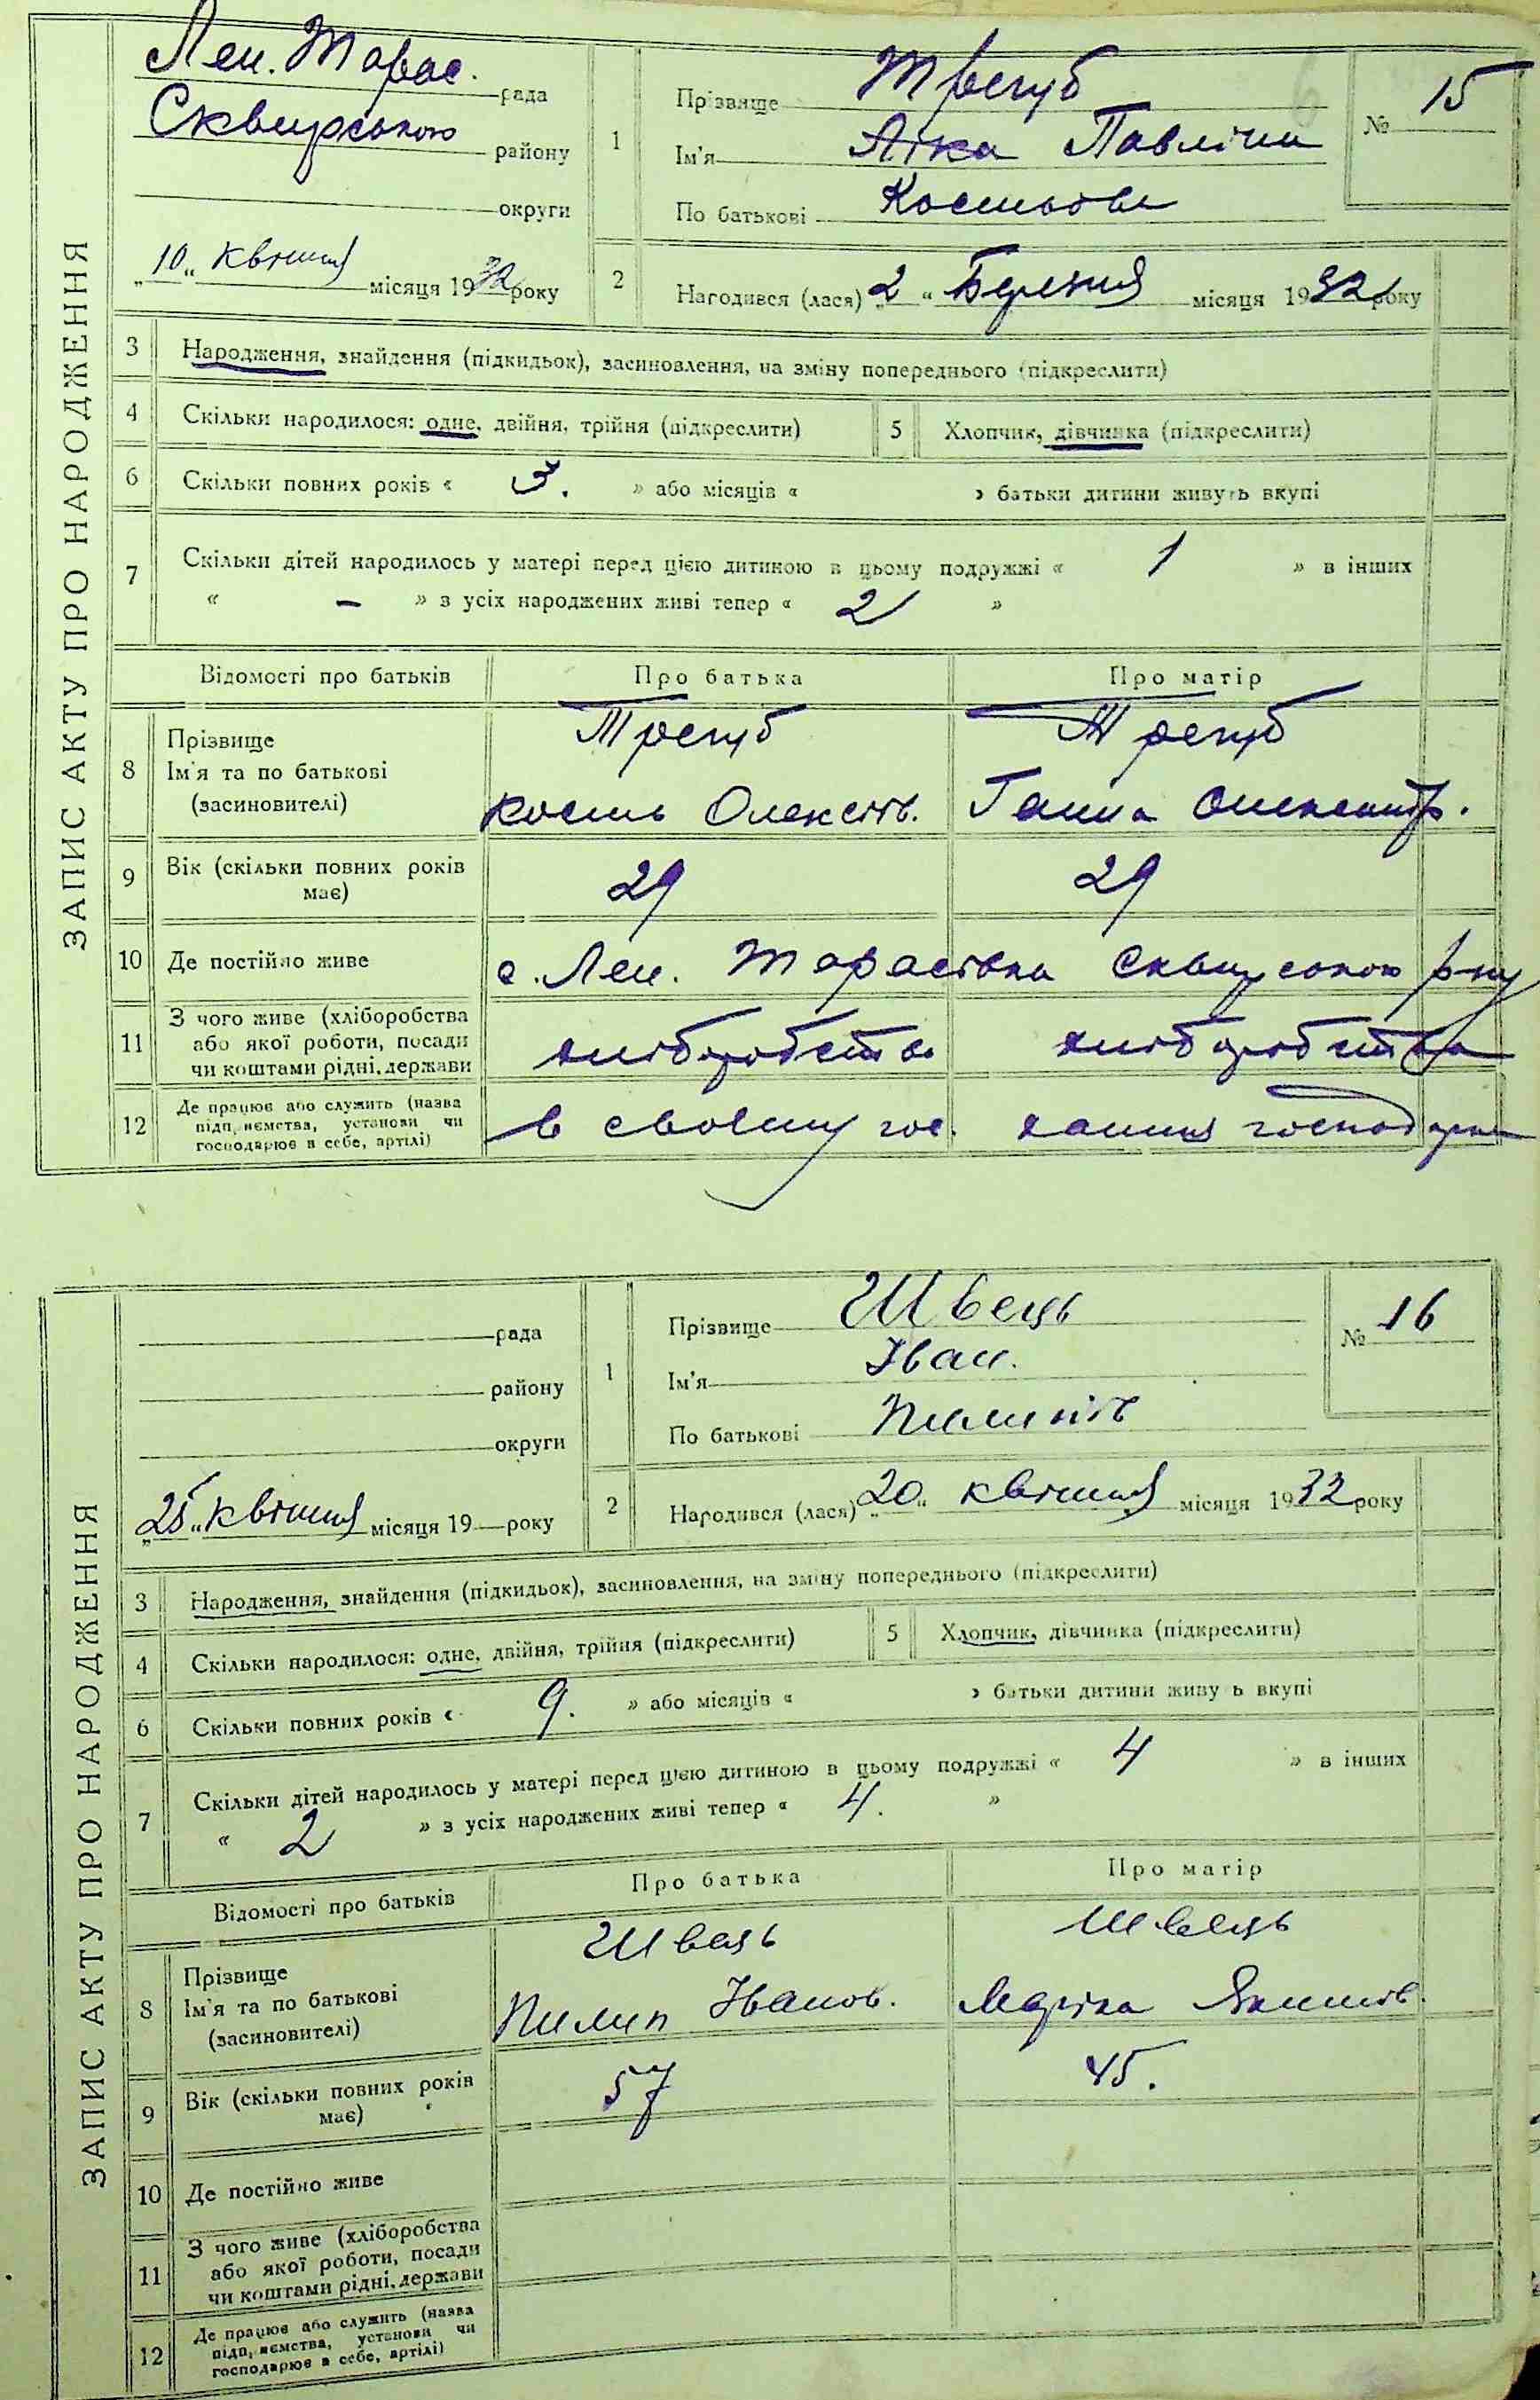 ЗАПИС АКТУ ПРО НАРОДЖЕННЯ
Лен. Тарас. рада
Сквирського району
округи
„10„ квітня місяця 1932 року
1
Прізвище Трегуб
Ім'я Павліна
По батькові Костьова
№ 15
2
Народився (лася) „2“ Березня місяця 1932 року
3 Народження, знайдення (підкидьок), засиновлення, на зміну попереднього (підкреслити)
4 Скільки народилося: одне, двійня, трійня (підкреслити) 5 Хлопчик, дівчинка (підкреслити)
6 Скільки повних років « 3. » або місяців « » батьки дитини живуть вкупі
7 Скільки дітей народилось у матері перед цією дитиною в цьому подружжі « 1 » в інших
« – » з усіх народжених живі тепер « 2 »
Відомості про батьків Про батька Про матір
8 Прізвище Трегуб Трегуб
Ім'я та по батькові Кость Олексіїв. Ганна Олександр.
(засиновителі)
9 Вік (скільки повних років має) 29 29
10 Де постійно живе с. Лен. Тарасівка Сквирського р-ну
11 З чого живе (хліборобства
або якої роботи, посади хліборобства хліборобства
чи коштами рідні, держави
12 Де працює або служить (назва
підприємства, установи чи в своєму гос. господарка
господарює в себе, артілі)
ЗАПИС АКТУ ПРО НАРОДЖЕННЯ
рада
району
округи
„25„ квітня місяця 19 року
1
Прізвище Швець
Ім'я Іван.
По батькові Пилипів
№ 16
2
Народився (лася) „20„ квітня місяця 1932 року
3 Народження, знайдення (підкидьок), засиновлення, на зміну попереднього (підкреслити)
4 Скільки народилося: одне, двійня, трійня (підкреслити) 5 Хлопчик, дівчинка (підкреслити)
6 Скільки повних років « 9. » або місяців « » батьки дитини живуть вкупі
7 Скільки дітей народилось у матері перед цією дитиною в цьому подружжі « 4 » в інших
« 2 » з усіх народжених живі тепер « 4. »
Відомості про батьків Про батька Про матір
8 Прізвище Швець Швець
Ім'я та по батькові Пилип Іванов. Марта Якимів.
(засиновителі)
9 Вік (скільки повних років має) 57 45.
10 Де постійно живе
11 З чого живе (хліборобства
або якої роботи, посади
чи коштами рідні, держави
12 Де працює або служить (назва
підприємства, установи чи
господарює в себе, артілі)